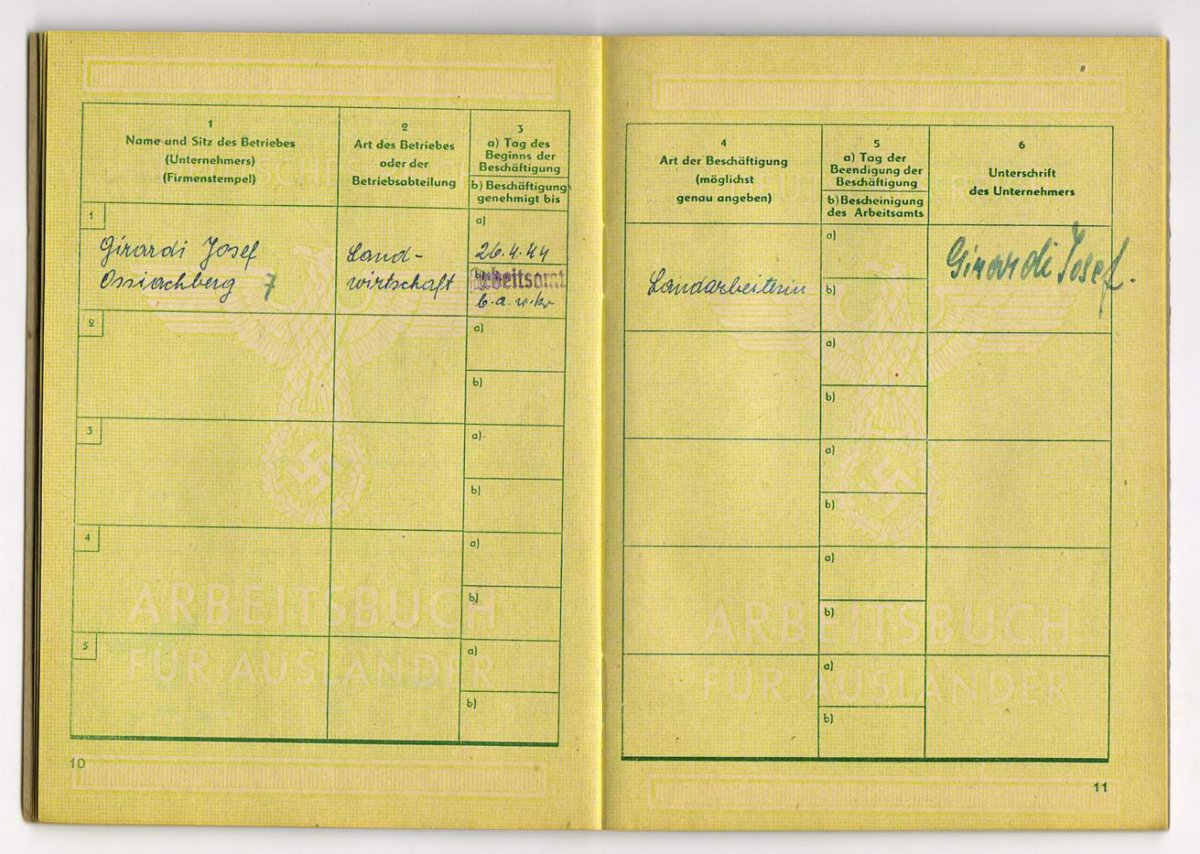 1
Name und Sitz des Betriebes
(Unternehmers)
(Firmenstempel)
2
Art des Betriebes
oder der
Betriebsabteilung
3
a) Tag des
Beginns der
Beschäftigung
b) Beschäftigung
genehmigt bis
1
Girardi Josef
Ossiachberg 7
Land-
wirtschaft
a)
26.4.44
b)
Arbeitsamt
b.a.w.
2
a)
b)
3
a)
b)
4
a)
b)
5
a)
b)
ARBEITSBUCH
FÜR AUSLÄNDER
10
4
Art der Beschäftigung
(möglichst
genau angeben)
5
a) Tag der
Beendigung der
Beschäftigung
b) Bescheinigung
des Arbeitsamts
6
Unterschrift
des Unternehmers
Landarbeiterin
a)
b)
Girardi Josef.
a)
b)
a)
b)
a)
b)
a)
b)
ARBEITSBUCH
FÜR AUSLÄNDER
11